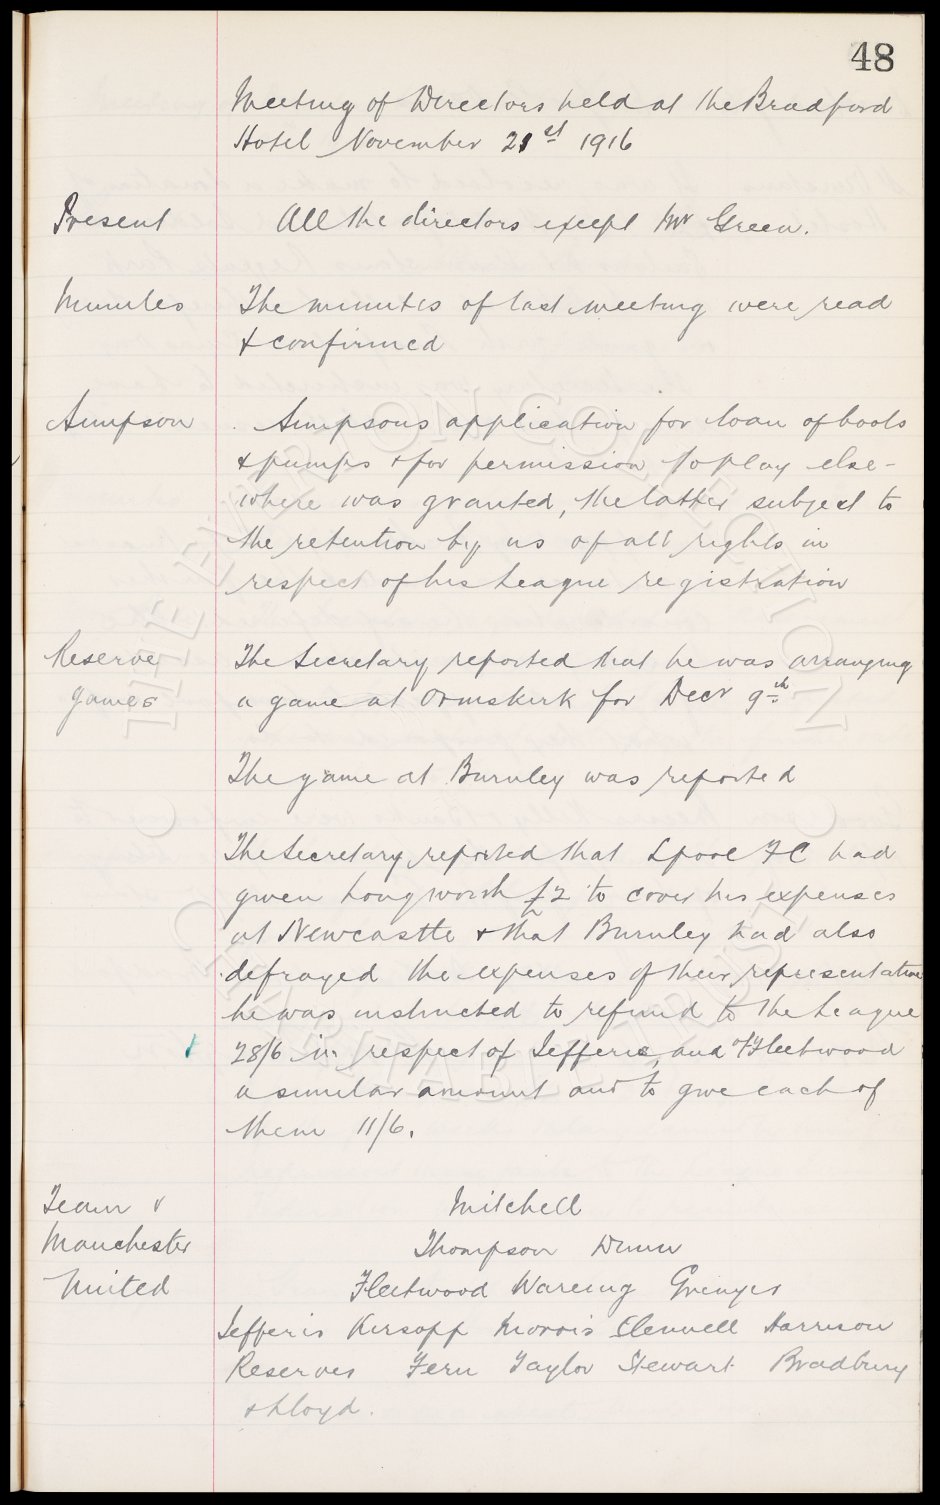 48
Meeting of Directors held at the Bradford
Hotel November 21st 1916
Present All the directors except Mr Green.
Minutes The minutes of last meeting were read
& confirmed
Simpson Simpsons application for loan of boots
& pumps & for permission to play else-
where was granted, the latter subject to
the retention by us of all rights in
respect of his League registration
Reserve The Secretary reported that he was arranging
games a game at Ormskirk for Decr 9th
The game at Burnley was reported
The Secretary reported that Lpool FC had
given Longworth £2 to cover his expenses
at Newcastle & that Burnley had also
defrayed the expenses of their representative
he was instructed to refund to the League
28/6 in respect of Jefferis, and of Fleetwood
a similar amount and to give each of
them 11/6.
Team v Mitchell
Manchester Thompson Dunn
United Fleetwood Wareing Grenyer
Jefferis Kirsopp Morris Clennell Harrison
Reserves Fern Taylor Stewart Bradbury
& Lloyd.
THE EVERTON COLLECTION
CHARITABLE TRUST